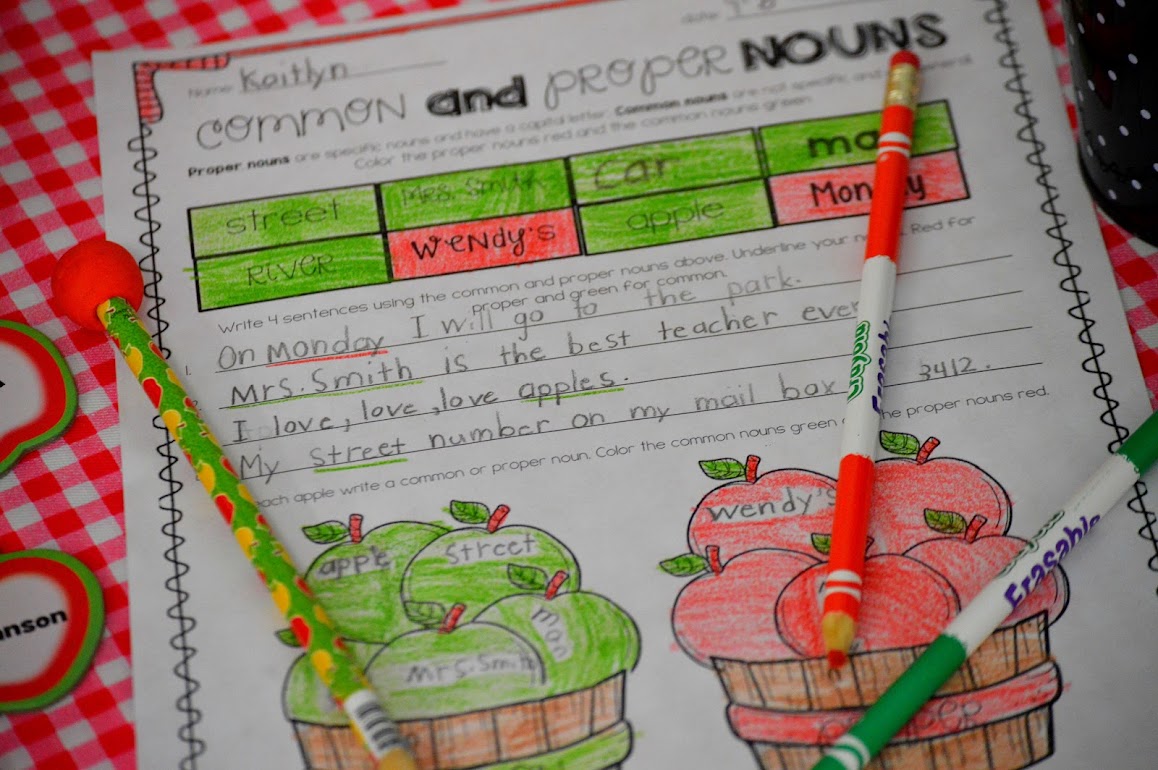 Name: Kaitlyn
COMMON and PROPER NOUNS
Proper nouns are specific nouns and have a capital letter. Common nouns are not specific and
Color the proper nouns red and the common nouns green.
street Mrs. Smith Car
RIVER WENDY'S apple Monday
Write 4 sentences using the common and proper nouns above. Underline your Red for
proper and green for common.
1. On Monday I will go to the park.
Mrs. Smith is the best teacher ever
I love, love, love apples.
My Street number on my mail box 3412.
each apple write a common or proper noun. Color the common nouns green the proper nouns red.
wendy's
apple Street
man
Mrs. Smith
Erasable
nson